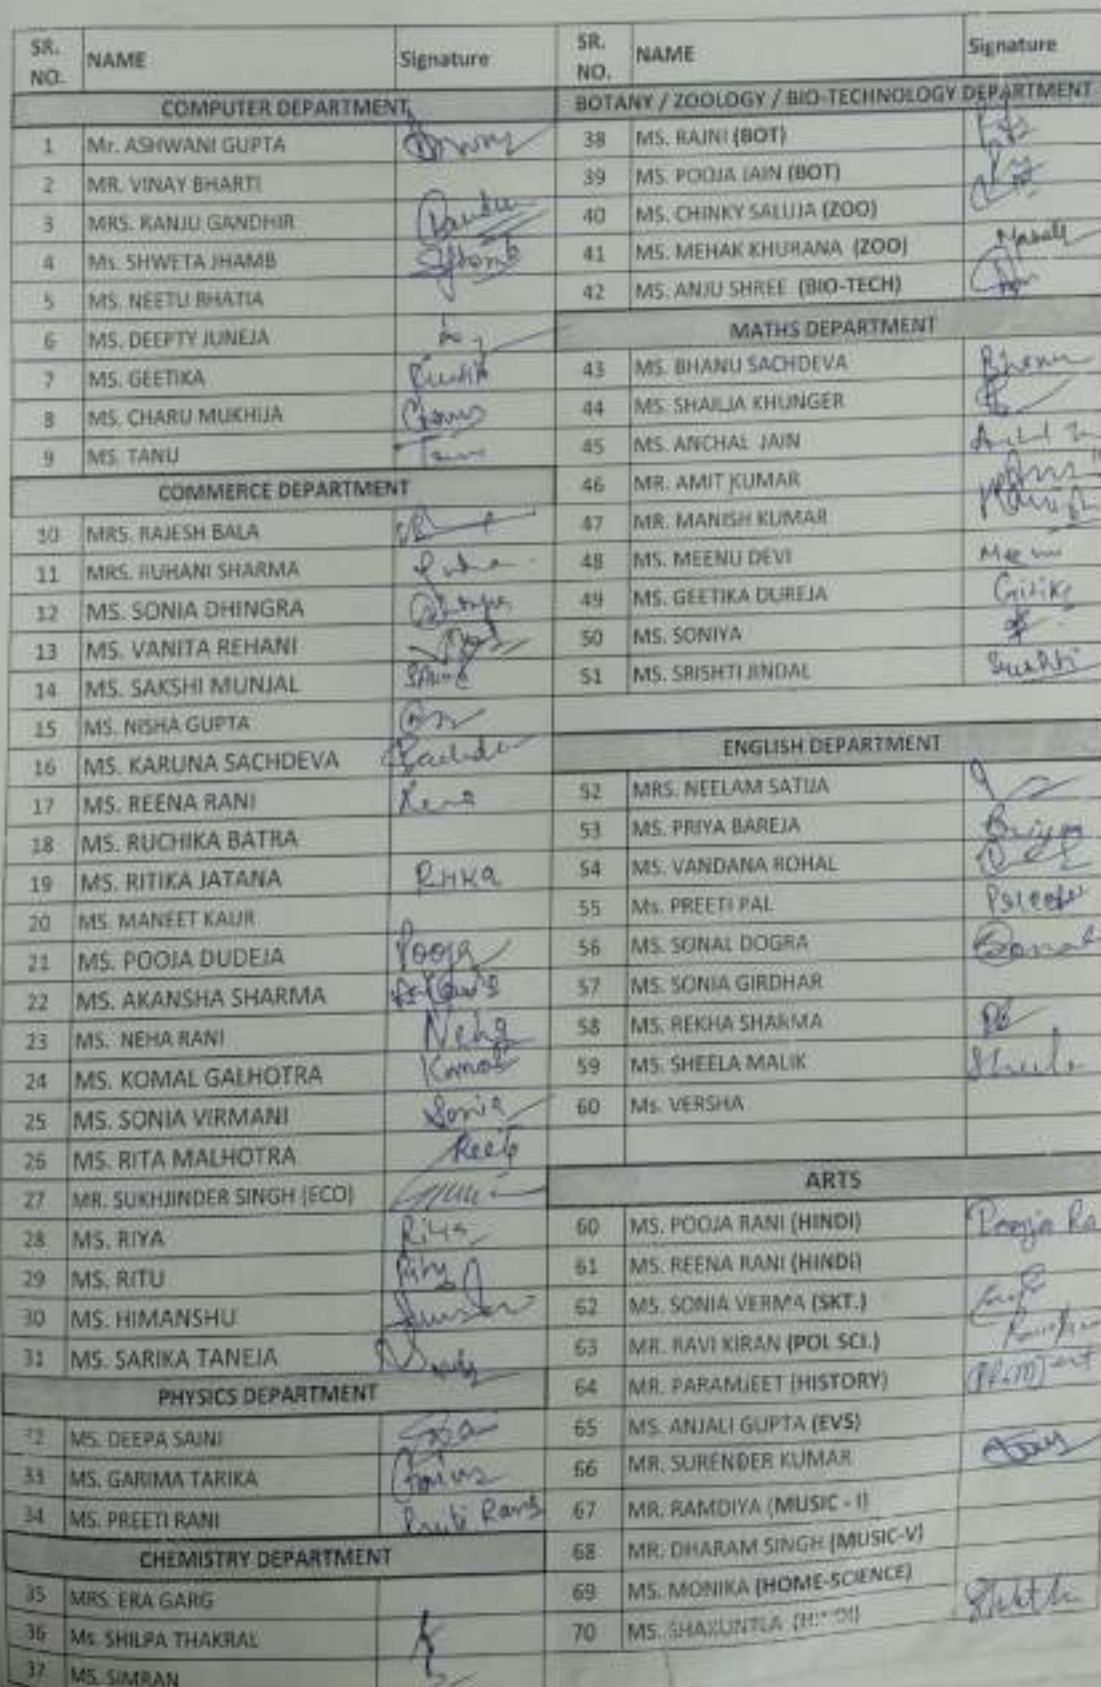 SR. NO. NAME Signature
COMPUTER DEPARTMENT
1 Mr. ASHWANI GUPTA
2 MR. VINAY BHARTI
3 MRS. RANJU GANDHIR
4 Ms. SHWETA JHAMB
5 MS. NEETU BHATIA
6 MS. DEEPTY JUNEJA
7 MS. GEETIKA
8 MS. CHARU MUKHIJA
9 MS. TANU
COMMERCE DEPARTMENT
10 MRS. RAJESH BALA
11 MRS. RUHANI SHARMA
12 MS. SONIA DHINGRA
13 MS. VANITA REHANI
14 MS. SAKSHI MUNJAL
15 MS. NISHA GUPTA
16 MS. KARUNA SACHDEVA
17 MS. REENA RANI
18 MS. RUCHIKA BATRA
19 MS. RITIKA JATANA
20 MS. MANEET KAUR
21 MS. POOJA DUDEJA Pooja
22 MS. AKANSHA SHARMA
23 MS. NEHA RANI Neha
24 MS. KOMAL GALHOTRA Komal
25 MS. SONIA VIRMANI Sonia
26 MS. RITA MALHOTRA
27 MR. SUKHJINDER SINGH (ECO)
28 MS. RIYA Riya
29 MS. RITU Ritu
30 MS. HIMANSHU
31 MS. SARIKA TANEJA
PHYSICS DEPARTMENT
32 MS. DEEPA SAINI
33 MS. GARIMA TARIKA
34 MS. PREETI RANI Preeti Rani
CHEMISTRY DEPARTMENT
35 MRS. ERA GARG
36 Ms. SHILPA THAKRAL
37 MS. SIMRAN
SR. NO. NAME Signature
BOTANY / ZOOLOGY / BIO-TECHNOLOGY DEPARTMENT
38 MS. RAJNI (BOT)
39 MS. POOJA JAIN (BOT)
40 MS. CHINKY SALUJA (ZOO)
41 MS. MEHAK KHURANA (ZOO)
42 MS. ANJU SHREE (BIO-TECH)
MATHS DEPARTMENT
43 MS. BHANU SACHDEVA Bhanu
44 MS. SHAILJA KHUNGER
45 MS. ANCHAL JAIN
46 MR. AMIT KUMAR
47 MR. MANISH KUMAR Manish
48 MS. MEENU DEVI Meenu
49 MS. GEETIKA DUREJA
50 MS. SONIYA
51 MS. SRISHTI JINDAL Srishti
ENGLISH DEPARTMENT
52 MRS. NEELAM SATIJA
53 MS. PRIYA BAREJA
54 MS. VANDANA ROHAL
55 Ms. PREETI PAL
56 MS. SONAL DOGRA Sonal
57 MS. SONIA GIRDHAR
58 MS. REKHA SHARMA
59 MS. SHEELA MALIK Sheela
60 Ms. VERSHA
ARTS
60 MS. POOJA RANI (HINDI) Pooja Ra
61 MS. REENA RANI (HINDI)
62 MS. SONIA VERMA (SKT.)
63 MR. RAVI KIRAN (POL SCI.)
64 MR. PARAMJEET (HISTORY)
65 MS. ANJALI GUPTA (EVS)
66 MR. SURENDER KUMAR
67 MR. RAMDIYA (MUSIC - I)
68 MR. DHARAM SINGH (MUSIC-V)
69 MS. MONIKA (HOME-SCIENCE)
70 MS. SHAKUNTLA (HINDI)